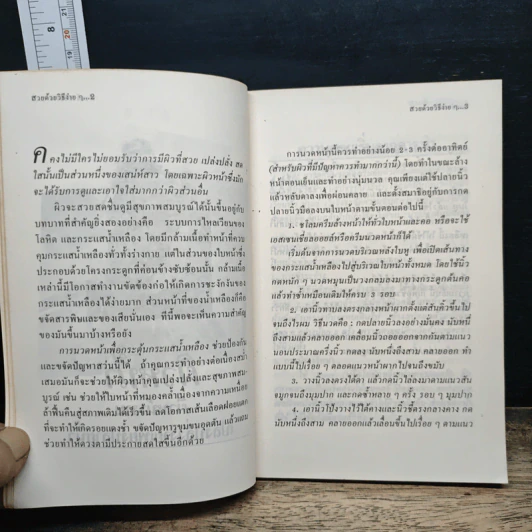 สวยด้วยวิธีง่าย ๆ...2
คงไม่มีใครไม่ยอมรับว่าการมีผิวที่สวย เปล่งปลั่ง สด
ใสนั้นเป็นส่วนหนึ่งของเสน่ห์สาว โดยเฉพาะผิวหน้าซึ่งมัก
จะได้รับการดูและเอาใจใส่มากกว่าผิวส่วนอื่น
ผิวจะสวยสดชื่นดูมีสุขภาพสมบูรณ์ได้นั้นขึ้นอยู่กับ
บทบาทที่สำคัญยิ่งสองอย่างคือ ระบบการไหลเวียนของ
โลหิต และกระแสน้ำเหลือง โดยมีกล้ามเนื้อทำหน้าที่ควบ
คุมกระแสน้ำเหลืองทั่วทั้งร่างกาย แต่ในส่วนของใบหน้าซึ่ง
ประกอบด้วยโครงกระดูกที่ค่อนข้างซับซ้อนนั้น กล้ามเนื้อ
เหล่านี้มีโอกาสทำงานขัดข้องก่อให้เกิดการชะงักงันของ
กระแสน้ำเหลืองได้ง่ายมาก ส่วนหน้าที่ของน้ำเหลืองก็คือ
ขจัดสารพิษและของเสียนั่นเอง ทีนี้พอจะเห็นความสำคัญ
ของมันขึ้นมาบ้างหรือยัง
การนวดหน้าเพื่อกระตุ้นกระแสน้ำเหลือง ช่วยป้องกัน
และขจัดปัญหาสว่นนี้ได้ ถ้าคุณกระทำอย่างต่อเนื่องสม่ำ
เสมอมันก็จะช่วยให้ผิวหน้าคุณเปล่งปลั่งและสุขภาพสม-
บูรณ์ เช่น ช่วยให้ใบหน้าที่หมองคล้ำเนื่องจากความเหนื่อย
ล้าฟื้นคืนสู่สภาพเดิมได้เร็วขึ้น ลดโอกาสเส้นเลือดฝอยแตก
ที่จะทำให้เกิดรอยแดงช้ำ ขจัดปัญหารูขุมขนอุดตัน แล้วแถม
ช่วยทำให้ดวงตามีประกายสดใสขึ้นอีกด้วย
สวยด้วยวิธีง่าย ๆ...3
การนวดหน้านี้ควรทำอย่างน้อย 2-3 ครั้งต่ออาทิตย์
(สำหรับผิวที่มีปัญหาควรทำมากกว่านี้) โดยทำในขณะล้าง
หน้าตอนเย็นและทำอย่างนุ่มนวล คุณเพียงแต่ใช้ปลายนิ้ว
แล้วหลับตาลงเพื่อผ่อนคลาย และตั้งสมาธิอยู่กับการกด
ปลายนิ้วมือลงบนใบหน้าตามขั้นตอนต่อไปนี้
1. ชโลมครีมล้างหน้าให้ทั่วใบหน้าและคอ หรือจะใช้
เอสเซนเชี่ยลออยล์หรือครีมนวดหน้าก็ได้
เริ่มต้นจากการนวดบริเวณหลังใบหู เพื่อเปิดเส้นทาง
ของกระแสน้ำเหลืองไปสู่บริเวณใบหน้าทั้งหมด โดยใช้นิ้ว
กดหนัก ๆ นวดหมุนเป็นวงกลมลงมาทางกระดูกต้นคอ
แล้วทำซ้ำเหมือนเดิมให้ครบ 3 รอบ
2. เอานิ้วทาบลงตรงกลางหน้าผากตั้งแต่สันคิ้วขึ้นไป
จนถึงไรผม วิธีนวดคือ : กดปลายนิ้วลงอย่างมั่นคง นับหนึ่ง
ถึงสามแล้วคลายออก เคลื่อนนิ้วถอยออกจากกันตามแนว
นอนประมาณครึ่งนิ้ว กดลง นับหนึ่งถึงสาม คลายออก ทำ
แบบนี้ไปเรื่อย ๆ ตลอดแนวหน้าผากไปจนถึงขมับ
3. วางนิ้วลงตรงใต้ตา แล้วกดนิ้วไล่ลงมาตามแนวสัน
จมูกจนถึงมุมปาก และกดซ้ำหลาย ๆ ครั้ง รอบ ๆ มุมปาก
4. เอานิ้วโป้งวางไว้ใต้คางและนิ้วชี้ตรงกลางคาง กด
นับหนึ่งถึงสาม คลายออกแล้วเลื่อนขึ้นไปเรื่อย ๆ ตามแนว
8
20
21